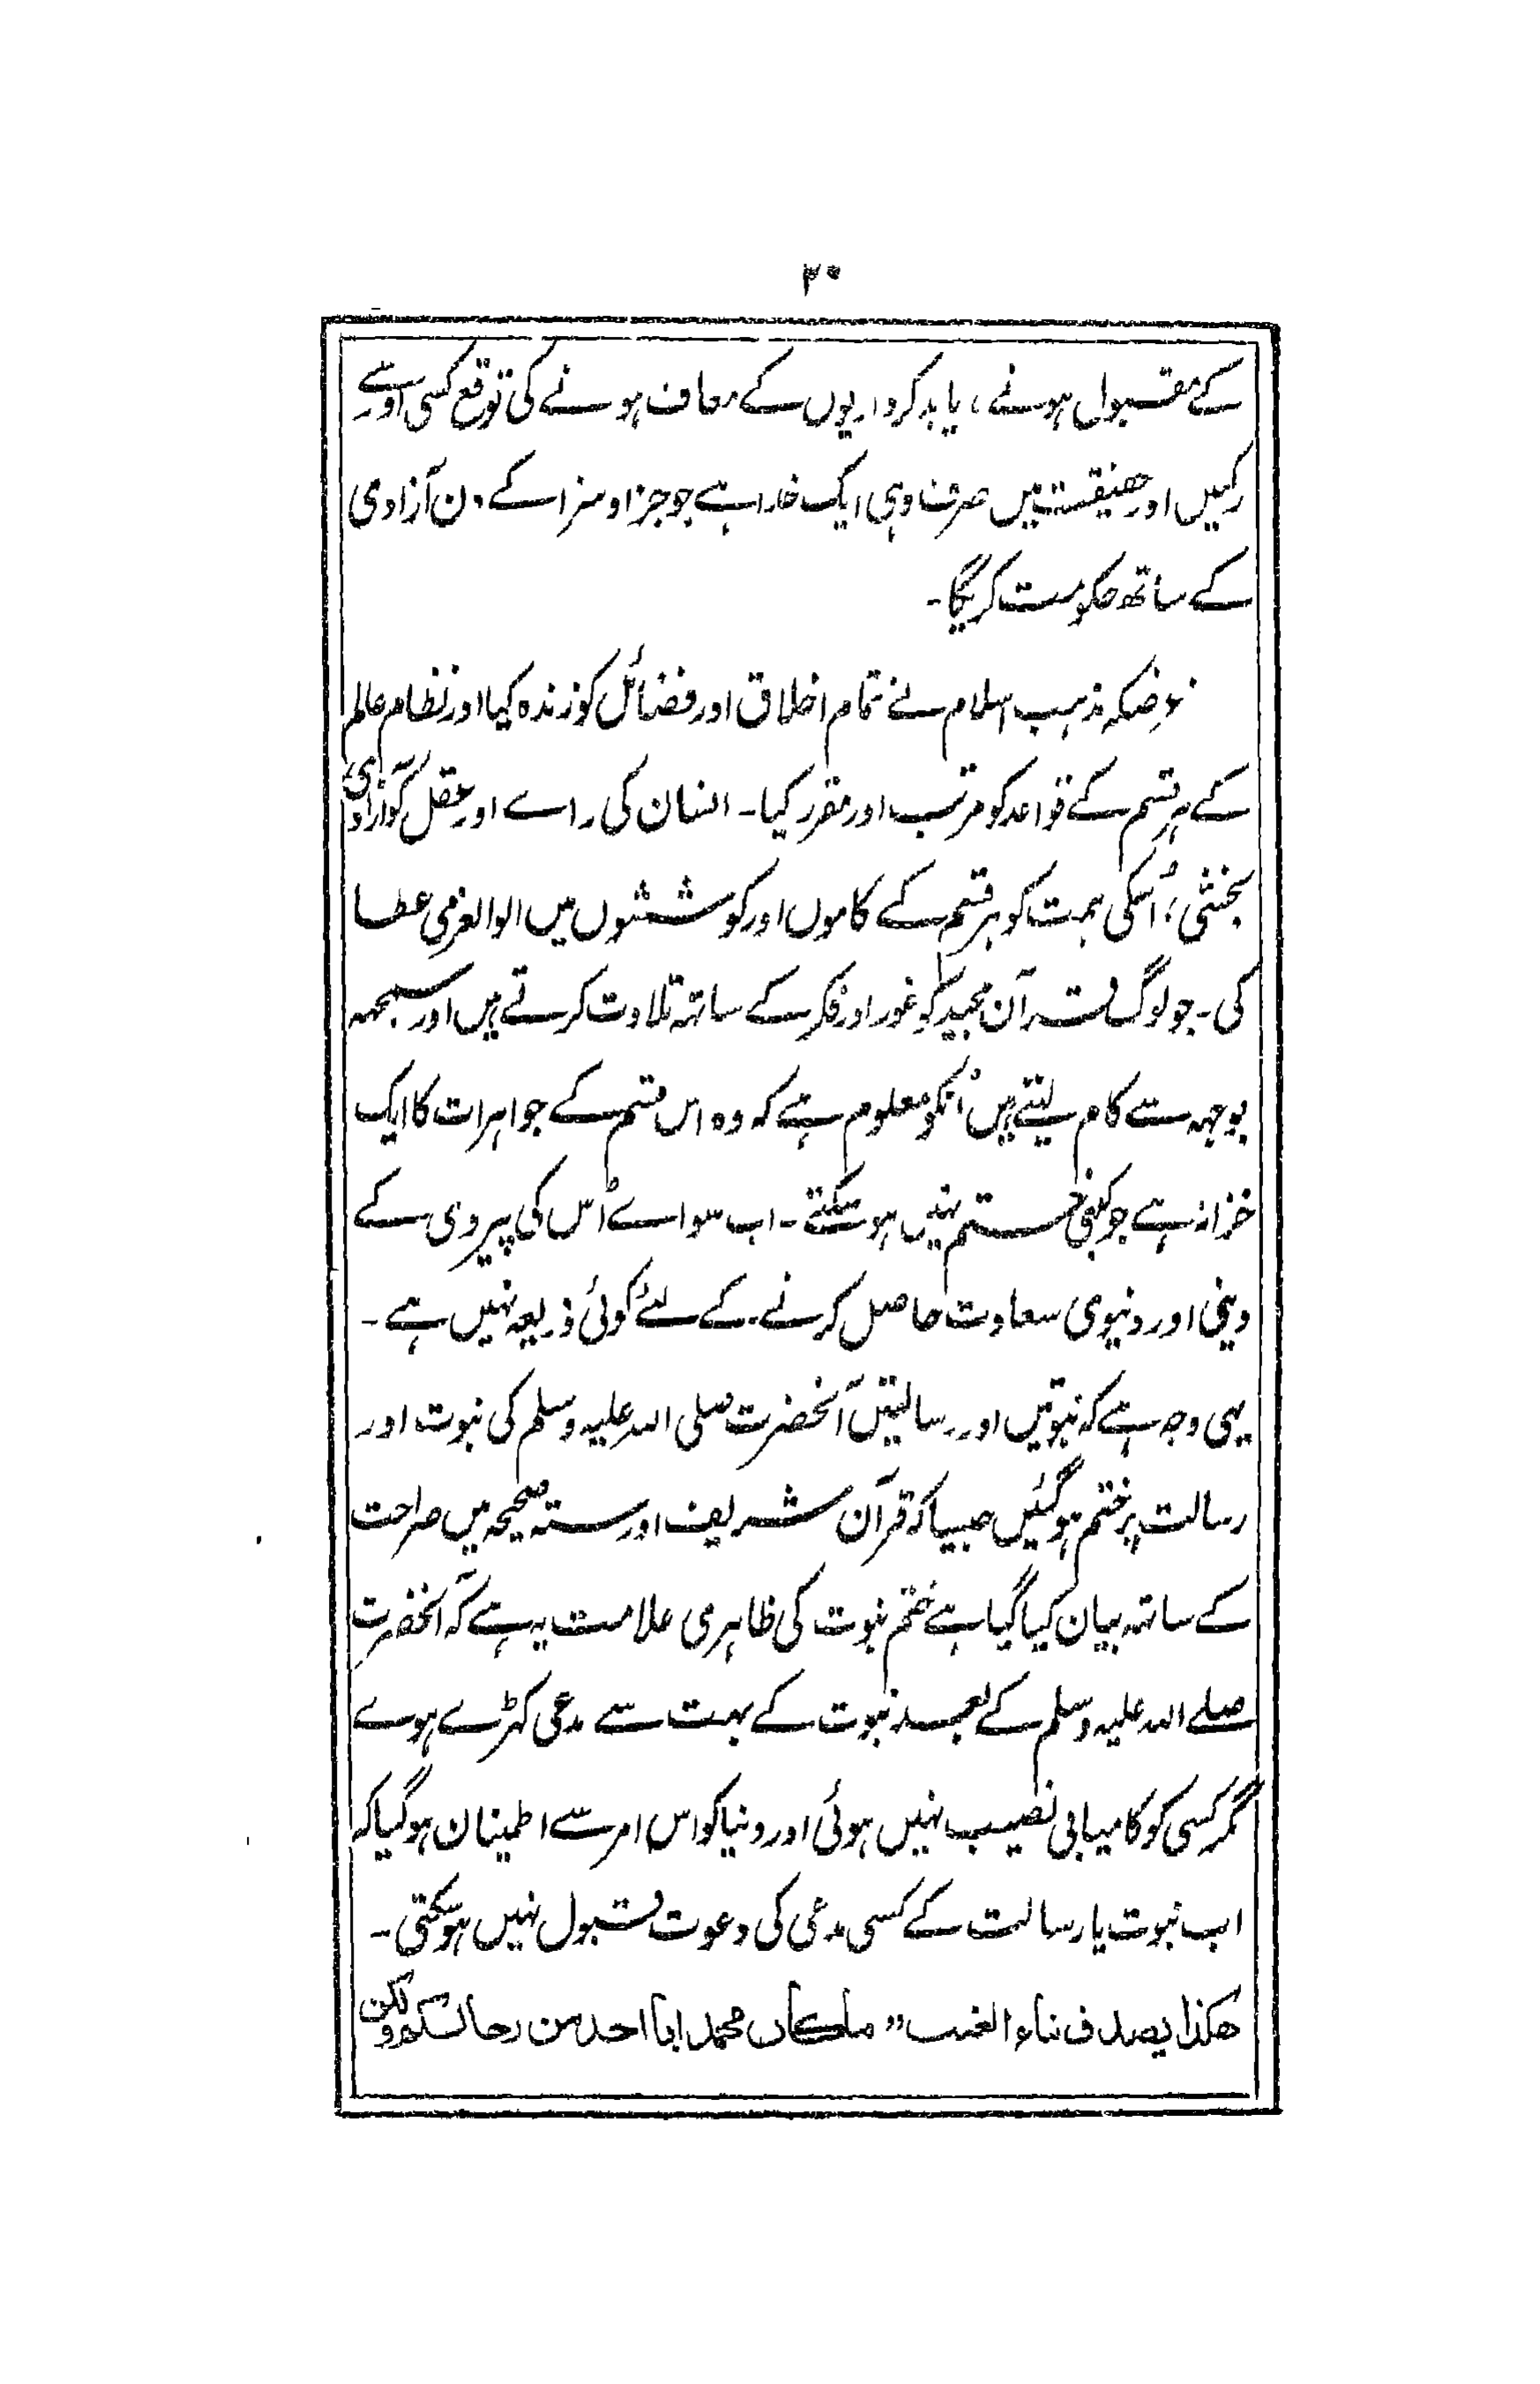 ۳۰
کے مقبول ہونے، یا بدکرداریوں کے معاف ہونے کی توقع کسی اور سے
رکہیں اور حقیقت میں صرف وہی ایک خدا ہے جو جزا و سزا کے دن آزادی
کے ساتھ حکومت کریگا۔
غرضکہ مذہب اسلام نے تمام اخلاق اور فضائل کو زندہ کیا اور نظام عالم
کے ہر قسم کے قواعد کو مرتب اور مقرر کیا۔ انسان کی راے اور عقل کو آزادی
بخشی، اُسکی ہمت کو ہر قسم کے کاموں اور کوششوں میں الوالعزمی عطا
کی۔ جو لوگ قرآن مجید کو غور اور فکر کے ساتہہ تلاوت کرتے ہیں اور سمجہہ
بوجہہ سے کام لیتے ہیں اُنکو معلوم ہے کہ وہ اس قسم کے جواہرات کا ایک
خزانہ ہے جو کبھی ختم نہیں ہو سکتے۔ اب سواے اُس کی پیروی کے
دینی اور دنیوی سعادت حاصل کرنے کے لئے کوئی ذریعہ نہیں ہے۔
یہی وجہ ہے کہ نبوتیں اور رسالتیں آنحضرت صلی اللہ علیہ وسلم کی نبوت اور
رسالت پر ختم ہو گئیں جیسا کہ قرآن شریف اور ستہ صحیحہ میں صراحت
کے ساتہہ بیان کیا گیا ہے ختم نبوت کی ظاہری علامت یہ ہے کہ آنحضرت
صلے اللہ علیہ وسلم کے بعد نبوت کے بہت سے مدعی کہڑے ہوے
مگر کسی کو کامیابی نصیب نہیں ہوئی اور دنیا کو اس امر سے اطمینان ہو گیا کہ
اب نبوت یا رسالت کے کسی مدعی کی دعوت قبول نہیں ہو سکتی۔
ھکذا یصدق نباء الغیب ” ماکان محمد ابا احد من رجالکم ولکن